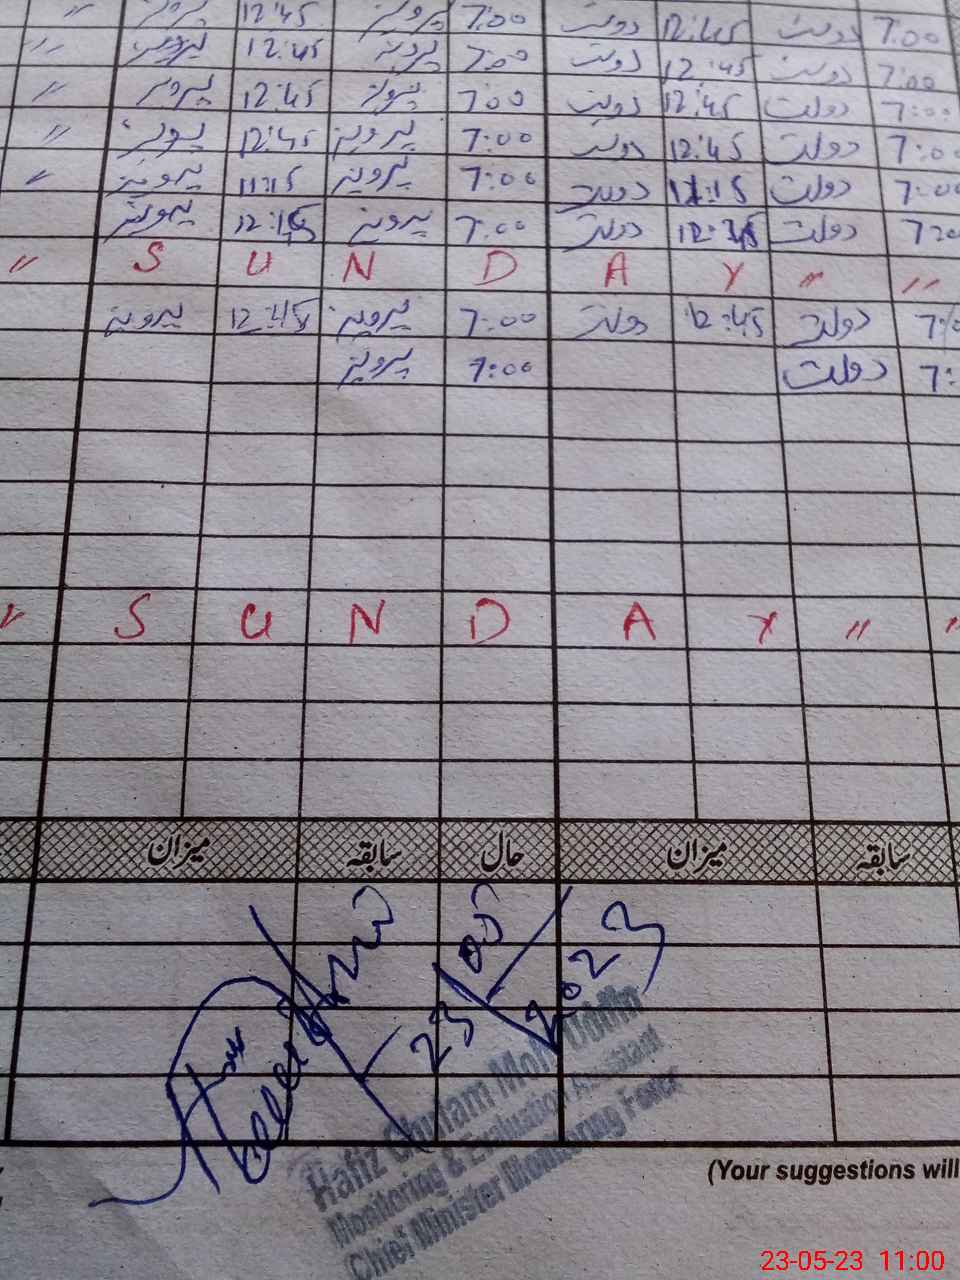 〃 پرویز 12:45 پرویز 7:00 دولت 12:45 دولت 7:00
〃 پرویز 12:45 پرویز 7:00 دولت 12:45 دولت 7:00
〃 پرویز 12:45 پرویز 7:00 دولت 12:45 دولت 7:00
〃 پرویز 12:45 پرویز 7:00 دولت 12:45 دولت 7:00
〃 پرویز 11:15 پرویز 7:00 دولت 11:15 دولت 7:00
پرویز پرویز 7:00 دولت دولت
〃 S U N D A Y 〃 〃
پرویز 12:45 پرویز 7:00 دولت 12:45 دولت
پرویز 7:00 دولت
〃 S U N D A Y 〃 〃
میزان سابقہ حال میزان سابقہ
23/05/2023
Hafiz Ghulam Mohi Uddin
Monitoring & Evaluation Assistant
Chief Minister Monitoring Force
(Your suggestions will
23-05-23 11:00